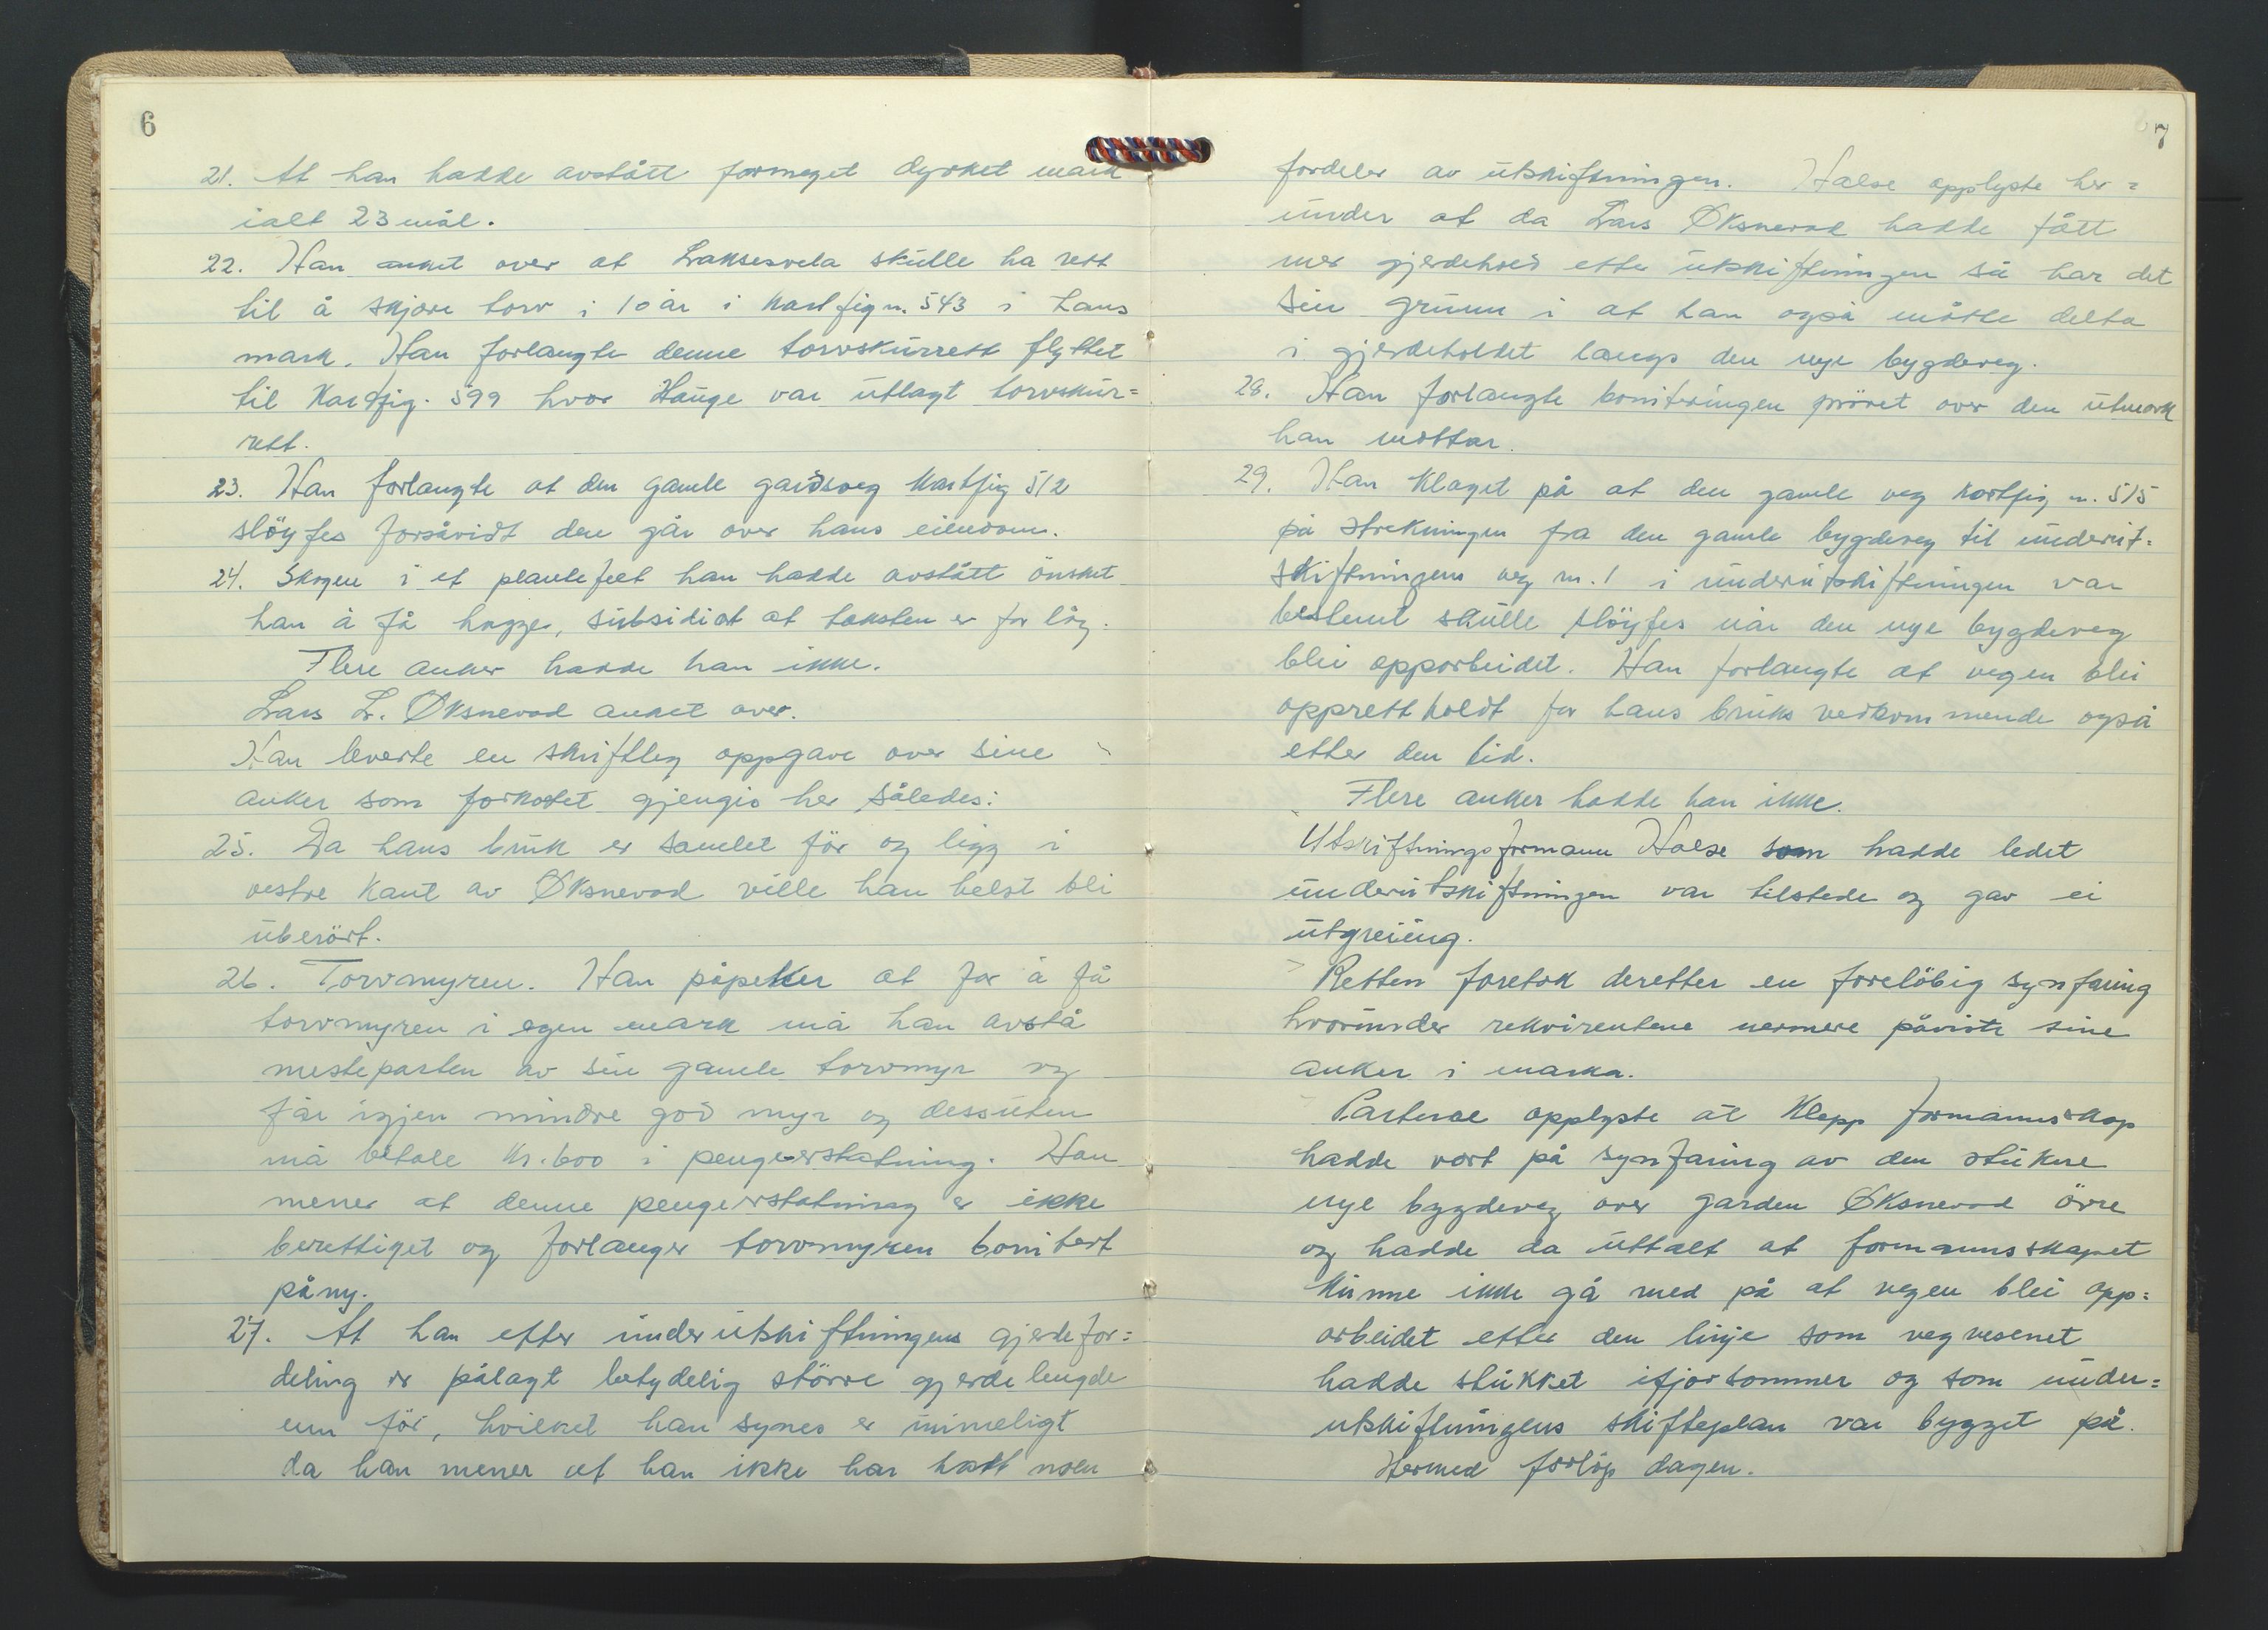 6
21. At han hadde avstått formeget dyrket mark
ialt 23 mål.
22. Han anket over at Laksesvela skulle ha rett
til å skjære torv i 10 år i kartfig n. 543 i hans
mark. Han forlangte denne torvskurrett flyttet
til Kartfig. 599 hvor Hauge var utlagt torvskur=
rett.
23. Han forlangte at den gamle gardsveg kartfig 512
slöyfes forsåvidt den går over hans eiendom.
24. Skogen i et plantefelt han hadde avstått önsket
han å få hogge, subsidiært at taksten er for låg.
Flere anker hadde han ikke.
Lars L. Øksnevad anket over.
Han leverte en skriftleg oppgave over sine
anker som forkortet gjengis her således:
25. Da hans bruk er samlet för og ligg i
vestre kant av Øksnevad ville han helst bli
uberört.
26. Torvmyren. Han påpeker at for å få
torvmyren i egen mark må han avstå
mesteparten av sin gamle torvmyr og
får igjen mindre god myr og dessuten
må betale kr. 600 i pengeerstatning. Han
mener at denne pengeerstatning er ikke
berettiget og forlanger torvmyren bonitert
påny.
27. At han efter underutskiftningens gjerdefor=
deling er pålagt betydelig större gjerdelengde
enn för, hvilket han synes er urimeligt
da han mener at han ikke har hatt noen
7
fordeler av utskiftningen. Halse opplyste her=
under at da Lars Øksnevad hadde fått
mer gjerdehold etter utskiftningen så har det
sin grunn i at han også måtte delta
i gjerdeholdet langs den nye bygdeveg.
28. Han forlangte boniteringen prövet over den utmark
han mottar.
29. Han klaget på at den gamle veg kartfig n. 515
på strekningen fra den gamle bygdeveg til underut=
skiftningens veg nr. 1 i underutskiftningen var
bestemt skulle slöyfes når den nye bygdeveg
blei opparbeidet. Han forlangte at vegen blei
opprettholdt for hans bruks vedkommende også
etter den tid.
Flere anker hadde han ikke.
Utskiftningsformann Halse som hadde ledet
underutskiftningen var tilstede og gav ei
utgreiing.
Retten foretok deretter en forelöbig synfaring
hvorunder rekvirentene nermere påviste sine
anker i marka.
Parterne opplyste at Klepp formannskap
hadde vert på synfaring av den stukne
nye bygdeveg over garden Øksnevad övre
og hadde da uttalt at formannskapet
kunne ikke gå med på at vegen blei opp=
arbeidet etter den linje som vegvesenet
hadde stukket ifjorsommer og som under=
utskiftningens skifteplan var bygget på.
Hermed forlöp dagen.